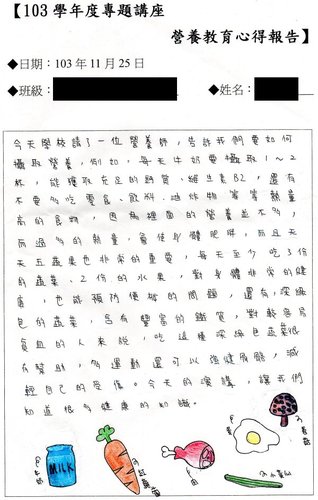 【103 學年度專題講座
營養教育心得報告】
◆日期：103 年 11 月 25 日
◆班級：
◆姓名：
今天學校請了一位營養師，告訴我們要如何
攝取營養，例如，每天牛奶要攝取1～2
杯，能獲取充足的鈣質、維生素B2，還有
不要多吃零食、飲料、油炸物等等熱量
高的食物，因為裡面的營養並不多，
而過多的熱量，會使身體肥胖，而且天
天五蔬果也非常的重要，每天至少吃3份
的蔬菜、2份的水果，對身體非常的健
康，也能預防便秘的問題，還有，深綠
色的蔬菜，含有豐富的鐵質，對較容易
貧血的人來說，吃這種深綠色蔬菜很
有幫助，多運動還可以強健身體，減
輕自己的反應。今天的演講，讓我們
知道很多健康的知識。
MILK
牛奶
紅蘿蔔
肉
蛋
香菇
小黃瓜